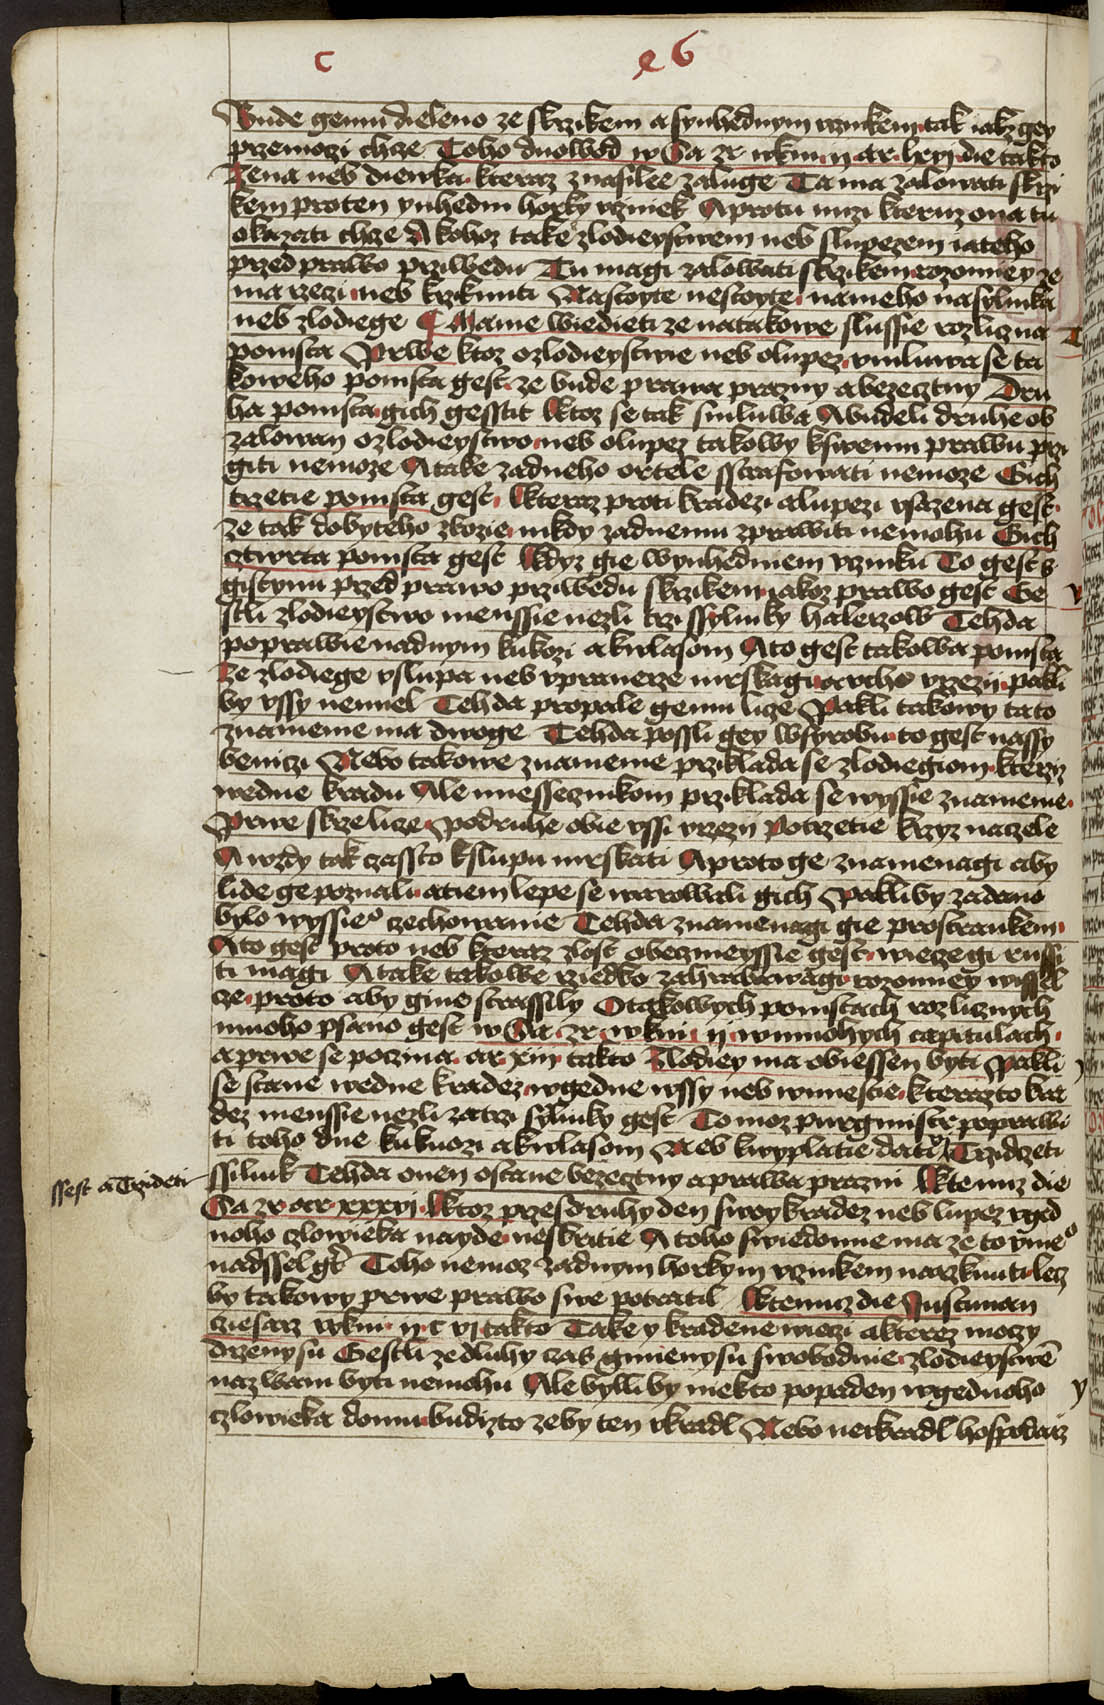 c e6
Bude gemu dieleno ze skrzikem a synhednym vczinkem tak iakz gey
przemozi chcze Toho duowod w Sa zr wkni ij ar lxxj die takto
Zena neb diewka kteraz znasilee zaluge Ta ma zalowati skrzi
kem pro ten ynhedni horky vcziniek A protu muzi kteruz ona tu
okazati chcze A kohoz take zlodieystwem neb slupezem iateho
przed prawo prziwedu Tu magi zalowati skrzikem rozomney ze
ma rzeczi neb krziknuti Nastoyte nestoyte nameho nasylnika
neb zlodiege Mame wiedieti ze natakowe slussie rozliczna
pomsta Prwe ktoz ozlodieystwie neb olupez vmluwa se ta
koweho pomsta gest ze bude prawa prazny a bezecztny Dru
ha pomsta gich gesstit Ktoz se tak smluwa A budeli druhe ob
zalowan ozlodieystwo neb olupez takowy kswemu prawu przi
giti nemoze A take zadneho ortele sstrafowati nemoze Gich
trzetie pomsta gest Kteraz proti kradezi a lupezi vsazena gest
ze tak dobyteho zbozie nikdy zadnemu zprawiti nemohu Gich
cztwrta pomsta gest Kdyz gie wynhedniem vczinku To gest s
gistynu przed prawo prziwedu skrzikem iakoz prawo gest Ge
stli zlodieystwo menssie nezli trzi ssylinky halerzow Tehda
poprawie nadnym kukozi a kwlasom A to gest takowa pomsta
Ze zlodiege vslupa neb vpranerze mrskagi a vcho vrzezi pakli
by vssy nemiel Tehda propale gemu licze Pakli takowy tato
znamenie ma dwoge Tehda possli gey wssyrobu to gest nassy
benici Nebo takowe znamenie przikladase zlodiegiom kterziz
wedne kradu Ale miessecznikom przikladase wyssie znamenie
Prwe skrze licze Podruhe obie vssi vrzezi Potrzetie krzyz naczele
A wzdy tak czassto kslupu mrskati A proto ge znamenagi aby
lide ge poznali a tiem lepe se warowali gich Pakli by zadano
bylo wyssieo zechowanie Tehda znamenagi gie prostrankem
A to gest proto neb kteraz zlost obeczneyssie gest wieczegi russi
ti magi A take takowe rziedko zahrabawagi rozomney wissel
cze proto aby gine strassily O takowych pomstach rozlicznych
mnoho psano gest w Sa zr wkni ij wmnohych capitulach
a prwe se poczina ar xiij takto Zlodiey ma obiessen byti Pakli
se stane wedne kradez wgedne wssy neb wmiestie kterazto kra
dez menssie nezli za trzi ssylinky gest To moz purgmistr poprawi
ti toho dne kukuozi a kwlasom Neb kwyplatie dati Trzidczeti
ssilink Tehda onen ostane bezecztny a prawa prazni Ktemuz die
ssest a Trzideti
Sa zr ar xxxvj Ktoz przes druhy den swoy kradez neb lupez vged
noho czlowieka nayde neskritie A toho swiedomie ma ze to vmeo
nadssel gt Toho nemoz zadnym horkym vczinkem narzknuti lecz
by takowy prwe prawo swe potratil Ktemuz die Justinian
cziesarz wkni ij c vj takto Take y kradene wieczi a kterez moczy
drzeny su Gestli ze dluhy czas gmieny su swobodnie zlodieystwe
nazwani byti nemohu Ale bylli by niekto popaden wgednoho
czlowieka domu budizto ze by ten vkradl Nebo nevkradl hospodarz